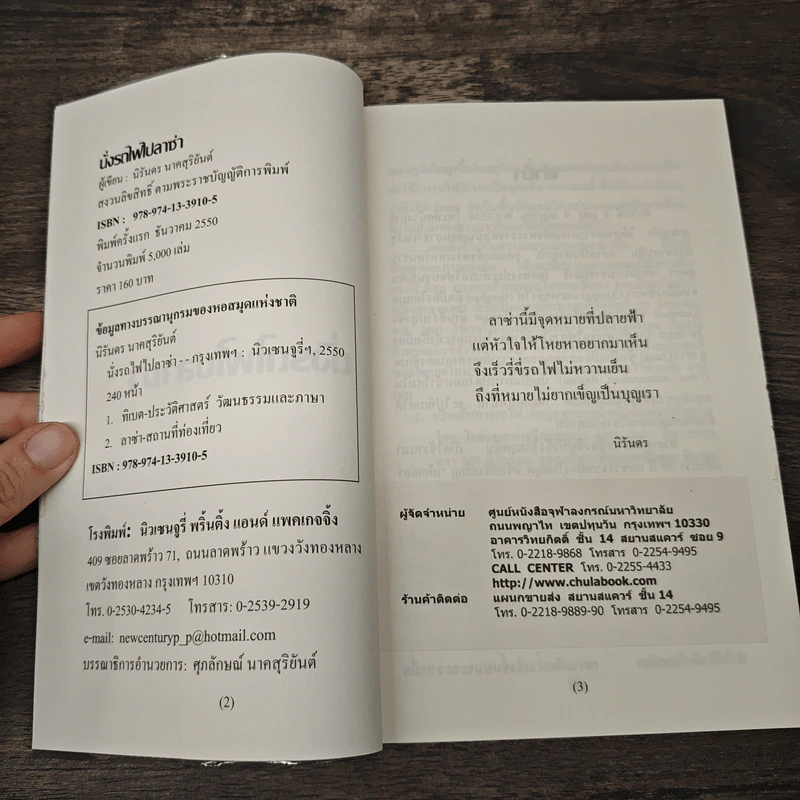 นั่งรถไฟไปลาซ่า
ผู้เขียน : นิรันดร นาคสุริยันต์
สงวนลิขสิทธิ์ ตามพระราชบัญญัติการพิมพ์
ISBN : 978-974-13-3910-5
พิมพ์ครั้งแรก ธันวาคม 2550
จำนวนพิมพ์ 5,000 เล่ม
ราคา 160 บาท
ข้อมูลทางบรรณานุกรมของหอสมุดแห่งชาติ
นิรันดร นาคสุริยันต์
นั่งรถไฟไปลาซ่า - - กรุงเทพฯ : นิวเซนจูรี่ฯ, 2550
240 หน้า
1. ทิเบต-ประวัติศาสตร์ วัฒนธรรมและภาษา
2. ลาซ่า-สถานที่ท่องเที่ยว
ISBN : 978-974-13-3910-5
โรงพิมพ์: นิวเซนจูรี่ พริ้นติ้ง แอนด์ แพคเกจจิ้ง
409 ซอยลาดพร้าว 71, ถนนลาดพร้าว แขวงวังทองหลาง
เขตวังทองหลาง กรุงเทพฯ 10310
โทร. 0-2530-4234-5 โทรสาร: 0-2539-2919
e-mail: newcenturyp_p@hotmail.com
บรรณาธิการอำนวยการ: ศุภลักษณ์ นาคสุริยันต์
(2)
ลาซ่านี้มีจุดหมายที่ปลายฟ้า
แต่หัวใจให้โหยหาอยากมาเห็น
จึงเร็วรี่ขี่รถไฟไม่หวานเย็น
ถึงที่หมายไม่ยากเข็ญเป็นบุญเรา
นิรันดร
ผู้จัดจำหน่าย ศูนย์หนังสือจุฬาลงกรณ์มหาวิทยาลัย
ถนนพญาไท เขตปทุมวัน กรุงเทพฯ 10330
อาคารวิทยกิตติ์ ชั้น 14 สยามสแควร์ ซอย 9
โทร. 0-2218-9868 โทรสาร 0-2254-9495
CALL CENTER โทร. 0-2255-4433
http://www.chulabook.com
ร้านค้าติดต่อ แผนกขายส่ง สยามสแควร์ ชั้น 14
โทร. 0-2218-9889-90 โทรสาร 0-2254-9495
(3)